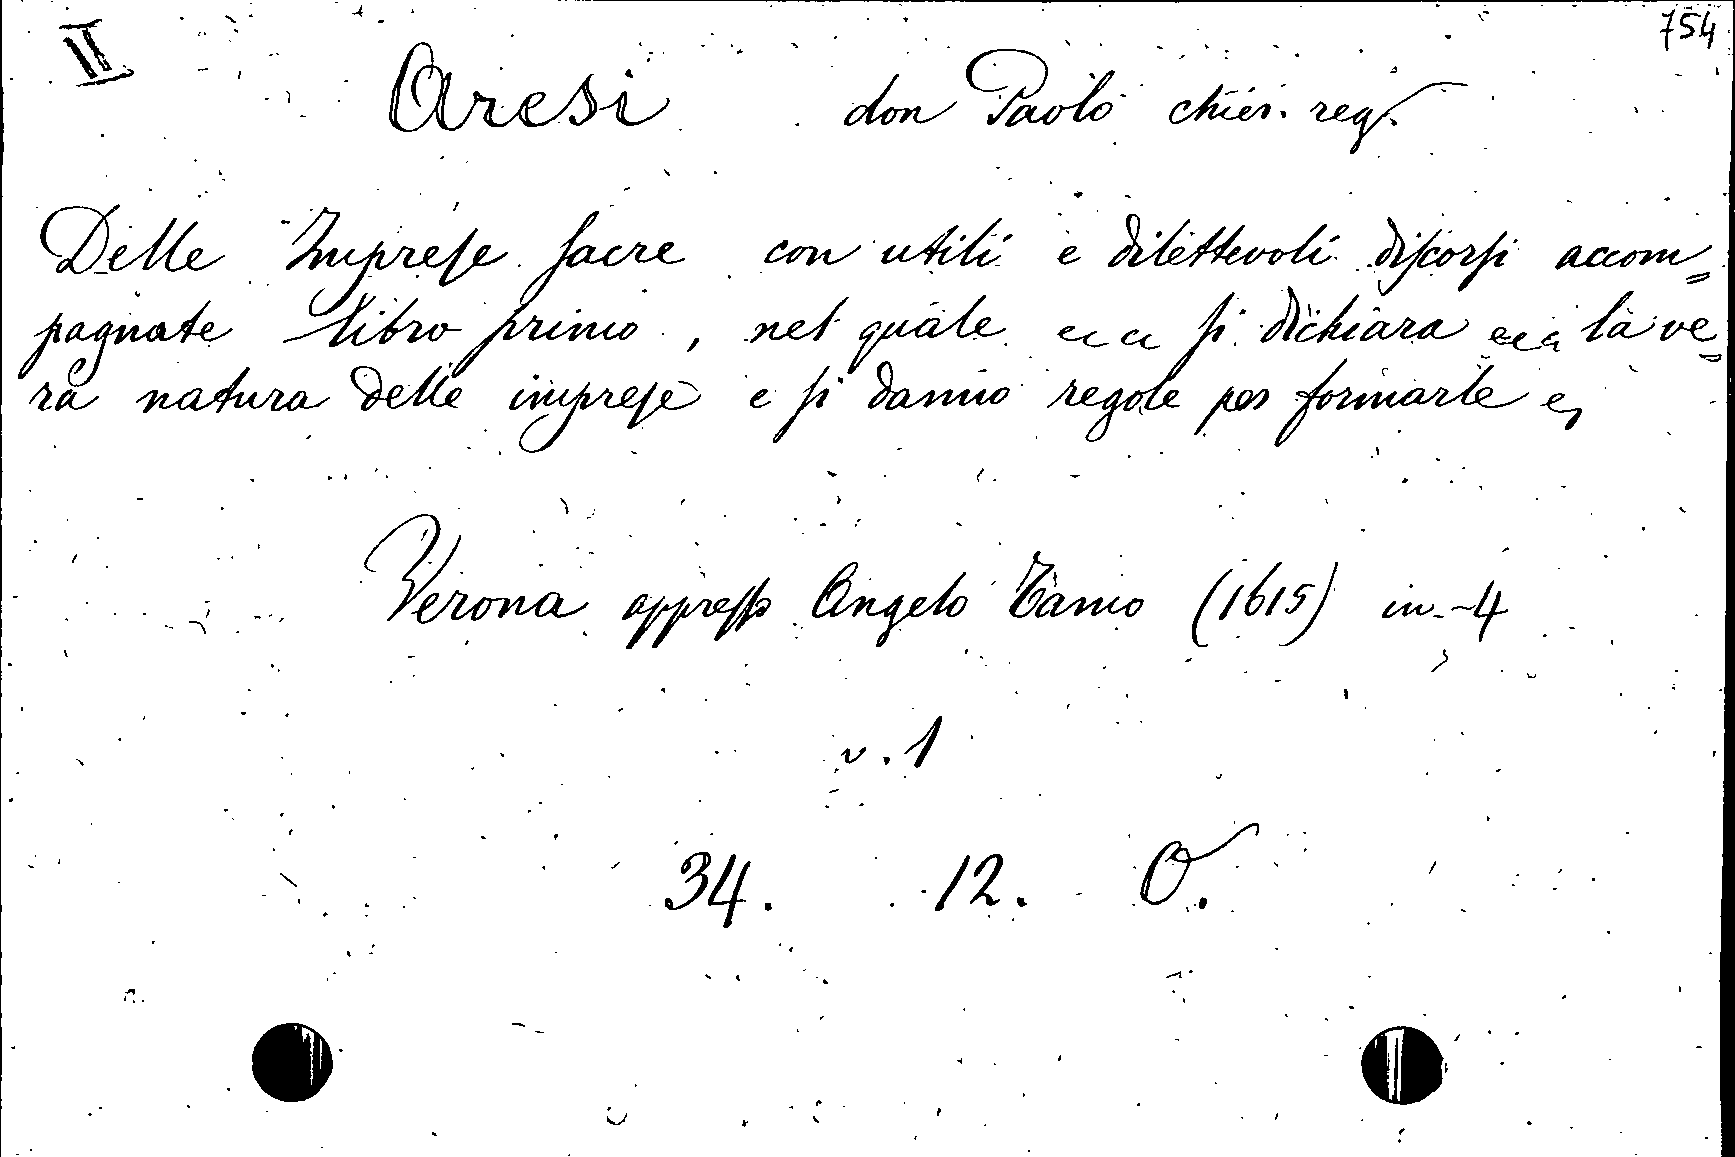 II
754
Aresi don Paolo chier. reg.
Delle Imprese sacre con utili e dilettevoli discorsi accom=
pagnate libro primo, nel quale si dichiara la ve=
ra natura delle imprese e si danno regole per formarle
Verona appresso Angelo Tamo (1615) in-4
v. 1
34. 12. O.